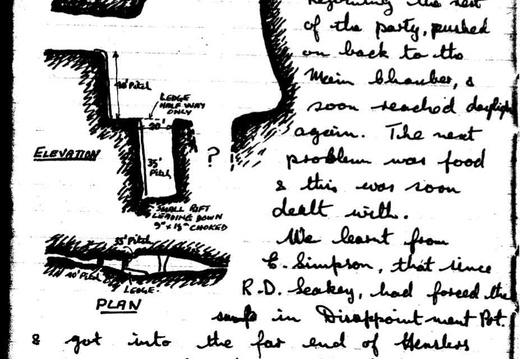 Rejoining the rest
of the party, pushed
on back to the
Main Chamber, &
soon reached daylight
again. The next
problem was food
& this was soon
dealt with.
We learnt from
E. Simpson, that since
R.D. Leakey, had forced the
sump in Disappointment Pot.
& got into the far end of Henslers
40' Pitch
LEDGE
HALF WAY
ONLY
20'
ELEVATION
35'
Pitch
?
SMALL RIFT
LEADING DOWN
9" x 1½" CHOKED
35' Pitch
40' Pitch
LEDGE
PLAN